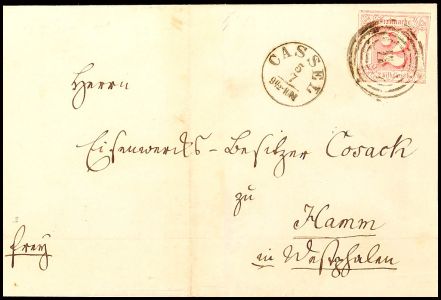 Freimarke
CASSEL
5
7
Herrn
Eisenwerks-Besitzer Cosack
zu
Hamm
in Westphalen
frey